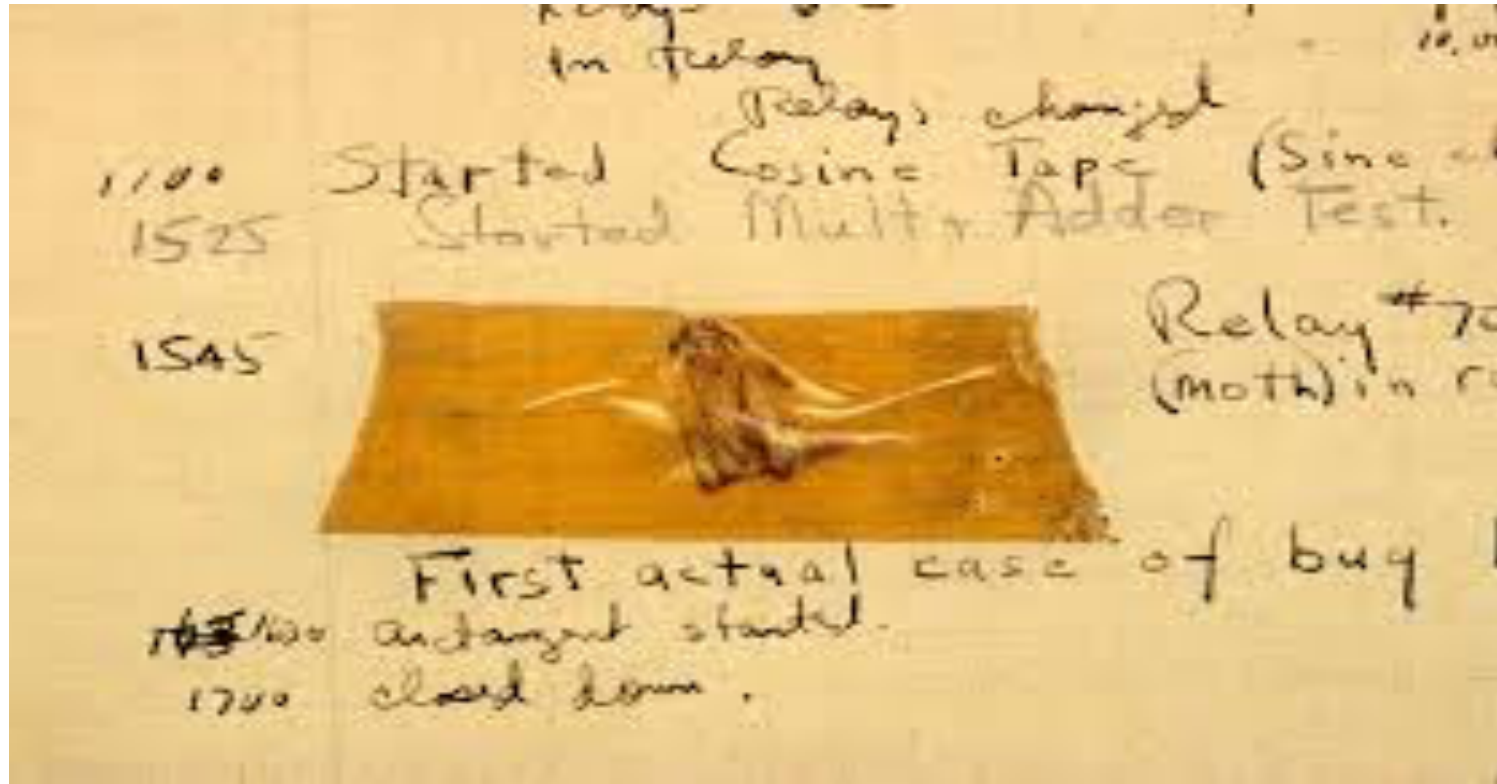 in relay
Relays changed
1100 Started Cosine Tape (Sine
1525 Started Mult+ Adder Test.
1545 Relay #70
(moth) in r
First actual case of bug
1630 antangent started.
1700 closed down.